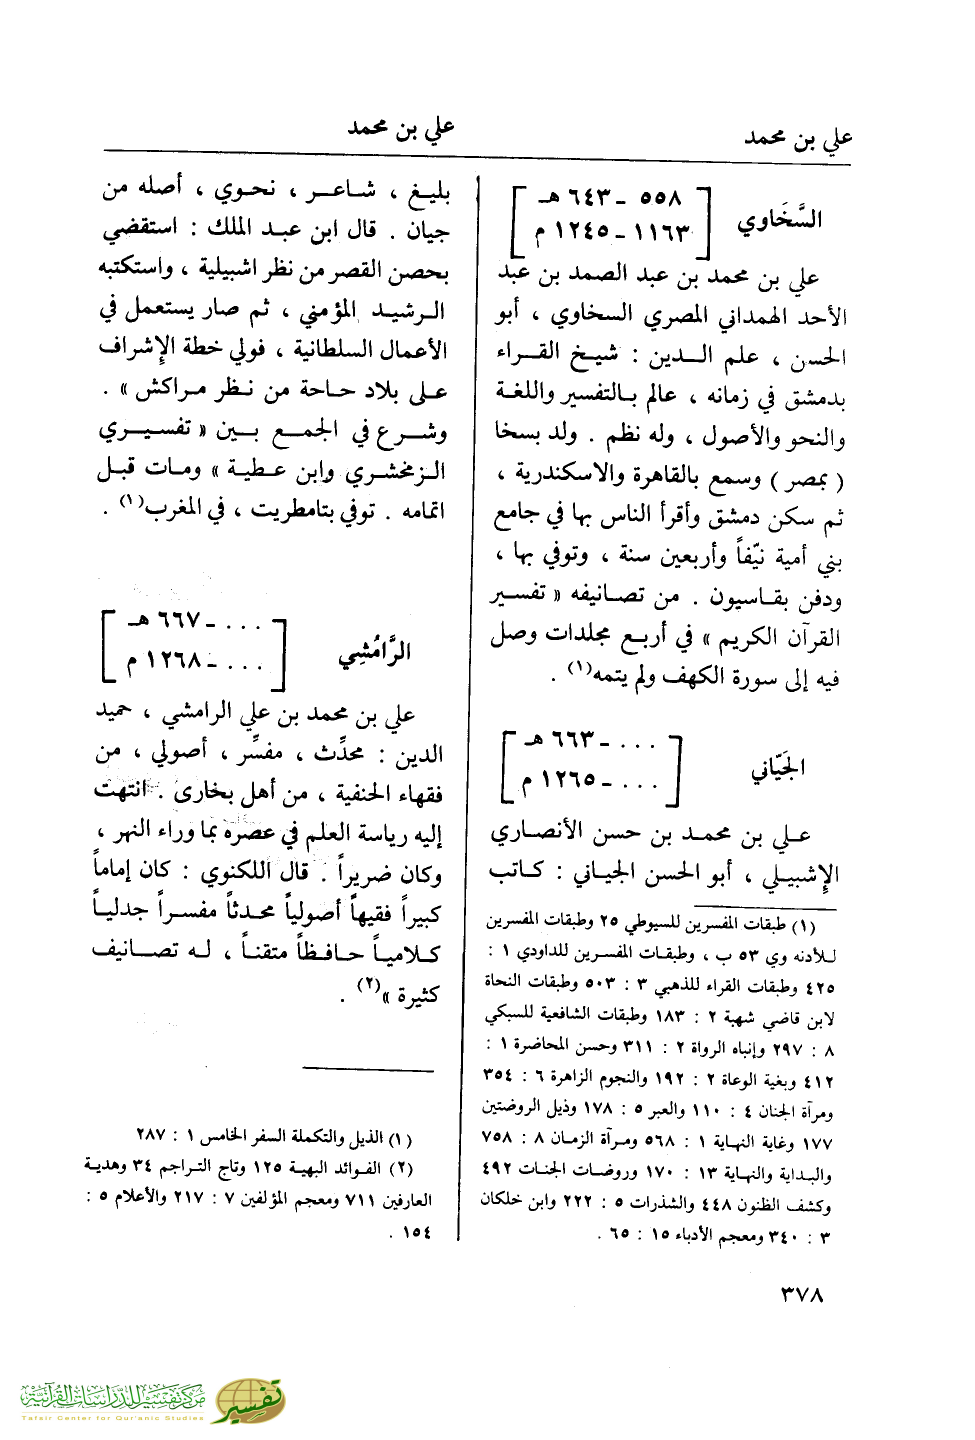 علي بن محمد
علي بن محمد
السَّخَاوي
٥٥٨ - ٦٤٣ هـ
١١٦٣ - ١٢٤٥ م
علي بن محمد بن عبد الصمد بن عبد
الأحد الهمداني المصري السخاوي ، أبو
الحسن ، علم الدين : شيخ القراء
بدمشق في زمانه ، عالم بالتفسير واللغة
والنحو والأصول ، وله نظم . ولد بسخا
( بمصر ) وسمع بالقاهرة والاسكندرية ،
ثم سكن دمشق وأقرأ الناس بها في جامع
بني أمية نيّفاً وأربعين سنة ، وتوفي بها ،
ودفن بقاسيون . من تصانيفه « تفسير
القرآن الكريم » في أربع مجلدات وصل
فيه إلى سورة الكهف ولم يتمه(١) .
الجَيّاني
... - ٦٦٣ هـ
... - ١٢٦٥ م
علي بن محمد بن حسن الأنصاري
الإشبيلي ، أبو الحسن الجياني : كاتب
(١) طبقات المفسرين للسيوطي ٢٥ وطبقات المفسرين
للأدنه وي ٥٣ ب ، وطبقات المفسرين للداودي ١ :
٤٢٥ وطبقات القراء للذهبي ٣ : ٥٠٣ وطبقات النحاة
لابن قاضي شهبة ٢ : ١٨٣ وطبقات الشافعية للسبكي
٨ : ٢٩٧ وإنباه الرواة ٢ : ٣١١ وحسن المحاضرة ١ :
٤١٢ وبغية الوعاة ٢ : ١٩٢ والنجوم الزاهرة ٦ : ٣٥٤
ومرآة الجنان ٤ : ١١٠ والعبر ٥ : ١٧٨ وذيل الروضتين
١٧٧ وغاية النهاية ١ : ٥٦٨ ومرآة الزمان ٨ : ٧٥٨
والبداية والنهاية ١٣ : ١٧٠ وروضات الجنات ٤٩٢
وكشف الظنون ٤٤٨ والشذرات ٥ : ٢٢٢ وابن خلكان
٣ : ٣٤٠ ومعجم الأدباء ١٥ : ٦٥ .
بليغ ، شاعر ، نحوي ، أصله من
جيان . قال ابن عبد الملك : استقضي
بحصن القصر من نظر اشبيلية ، واستكتبه
الرشيد المؤمني ، ثم صار يستعمل في
الأعمال السلطانية ، فولي خطة الإشراف
على بلاد حاحة من نظر مراكش » .
وشرع في الجمع بين « تفسيري
الزمخشري وابن عطية » ومات قبل
اتمامه . توفي بتامطريت ، في المغرب(١) .
الرَّامُشِي
... - ٦٦٧ هـ
... - ١٢٦٨ م
علي بن محمد بن علي الرامشي ، حميد
الدين : محدِّث ، مفسِّر ، أصولي ، من
فقهاء الحنفية ، من أهل بخارى . انتهت
إليه رياسة العلم في عصره بما وراء النهر ،
وكان ضريراً . قال اللكنوي : كان إماماً
كبيراً فقيهاً أصولياً محدثاً مفسراً جدلياً
كلامياً حافظاً متقناً ، له تصانيف
كثيرة »(٢) .
(١) الذيل والتكملة السفر الخامس ١ : ٢٨٧
(٢) الفوائد البهية ١٢٥ وتاج التراجم ٣٤ وهدية
العارفين ٧١١ ومعجم المؤلفين ٧ : ٢١٧ والأعلام ٥ :
١٥٤ .
٣٧٨
مركز تفسير للدراسات القرآنية
Tafsir Center for Qur'anic Studies
تفسير